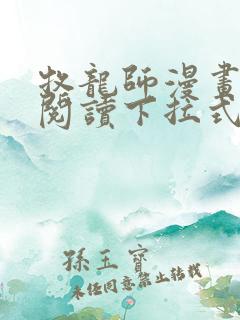 牧龍師漫畫
閱讀下拉式
孫玉寶
未經同意禁止轉載